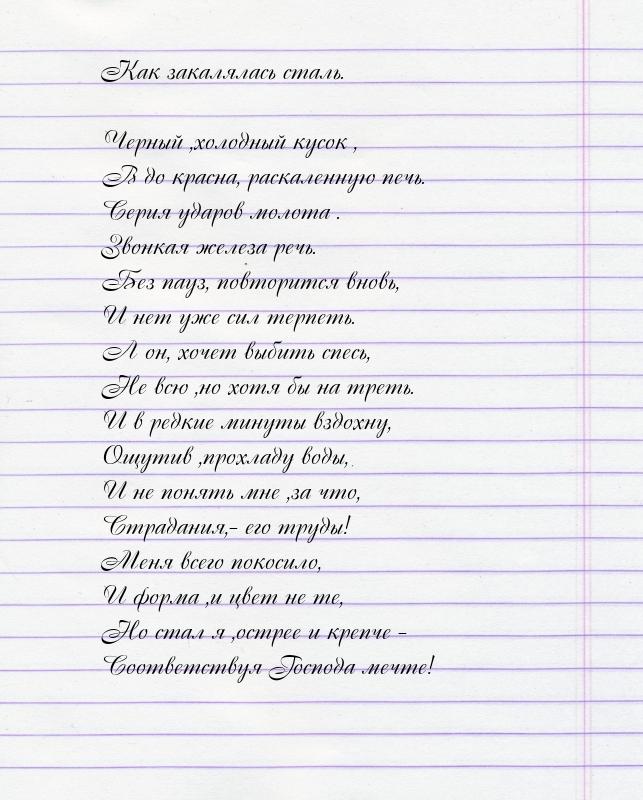 Как закалялась сталь.
Черный ,холодный кусок ,
В до красна, раскаленную печь.
Серия ударов молота .
Звонкая железа речь.
Без пауз, повторится вновь,
И нет уже сил терпеть.
А он, хочет выбить спесь,
Не всю ,но хотя бы на треть.
И в редкие минуты вздохну,
Ощутив ,прохладу воды,
И не понять мне ,за что,
Страдания,- его труды!
Меня всего покосило,
И форма ,и цвет не те,
Но стал я ,острее и крепче -
Соответствуя Господа мечте!